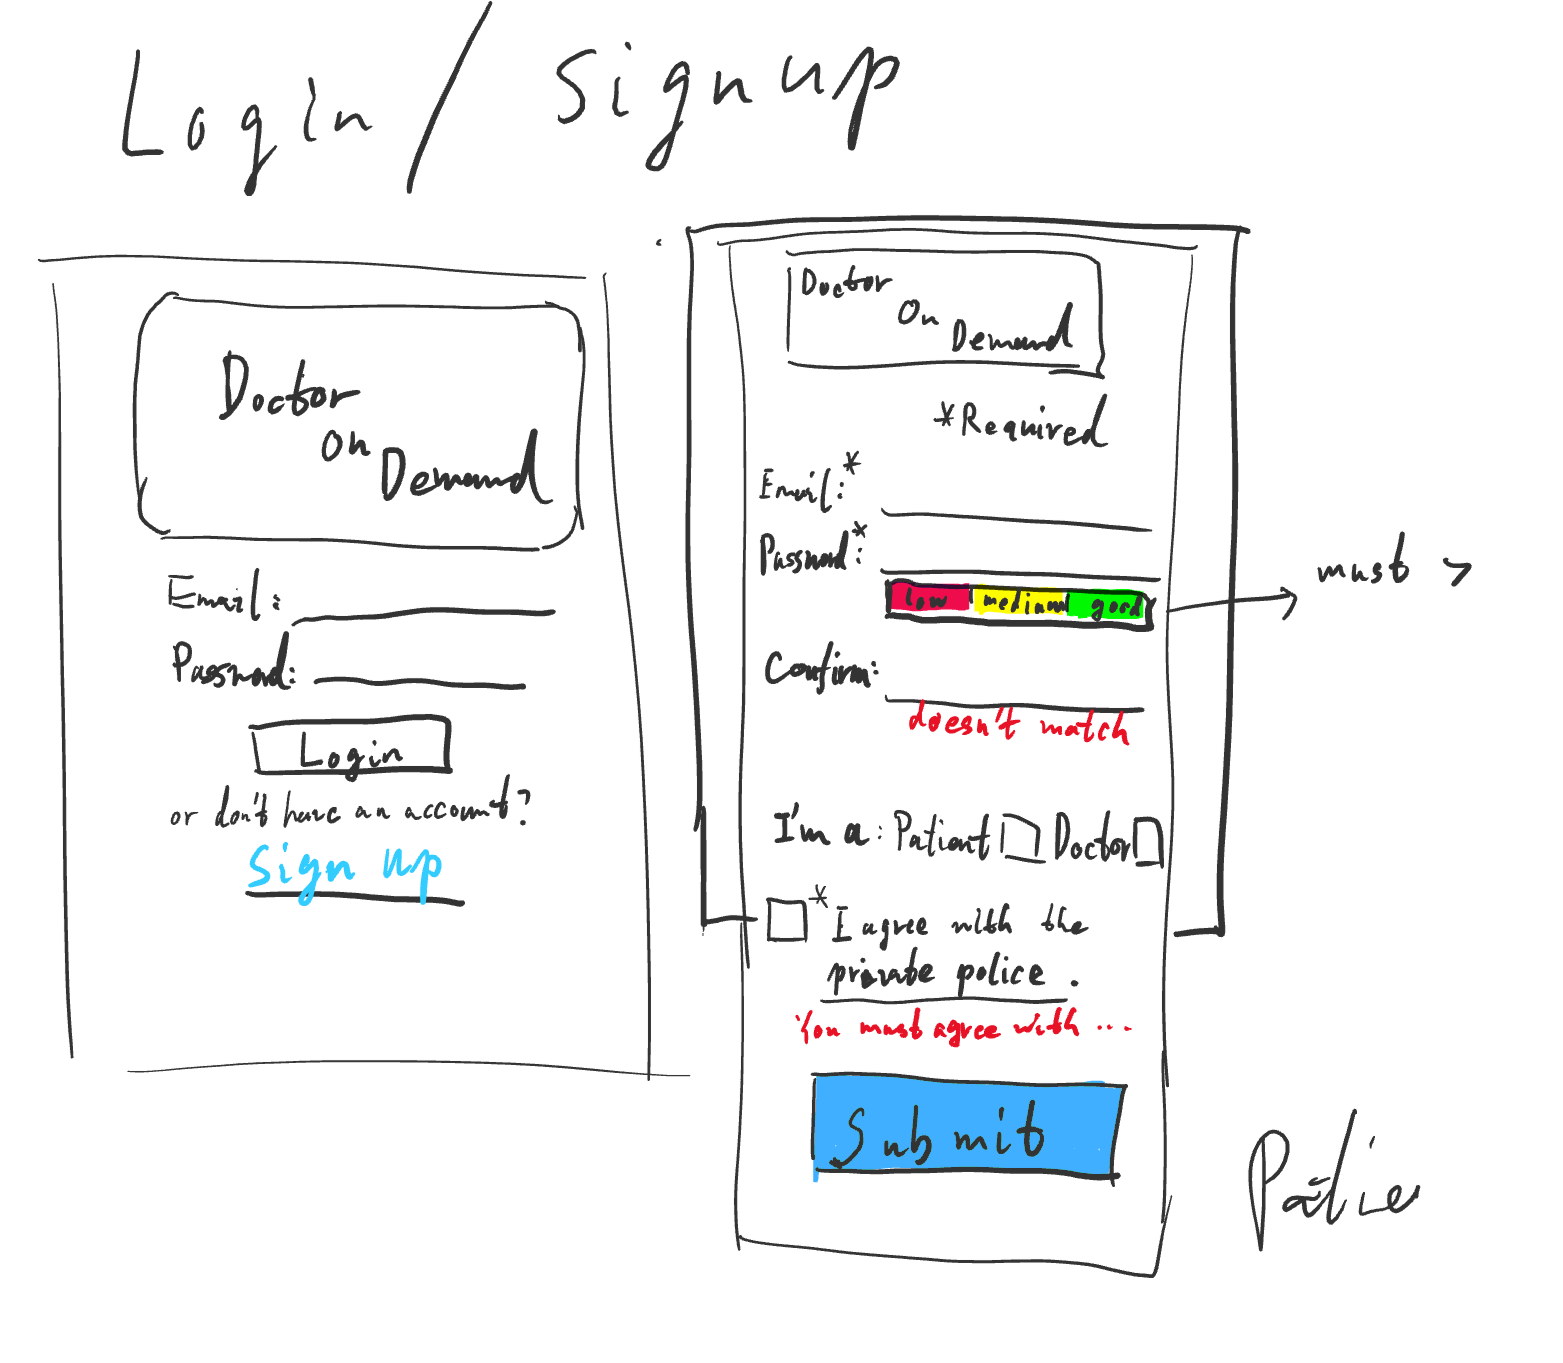 Login / Signup
Doctor
on
Demand
Email:
Password:
Login
or don't have an account?
Sign up
Doctor
On
Demand
*Required
Email:*
Password:*
low medium good
must >
Confirm:
doesn't match
I'm a: Patient Doctor
* I agree with the
private police.
You must agree with ...
Submit